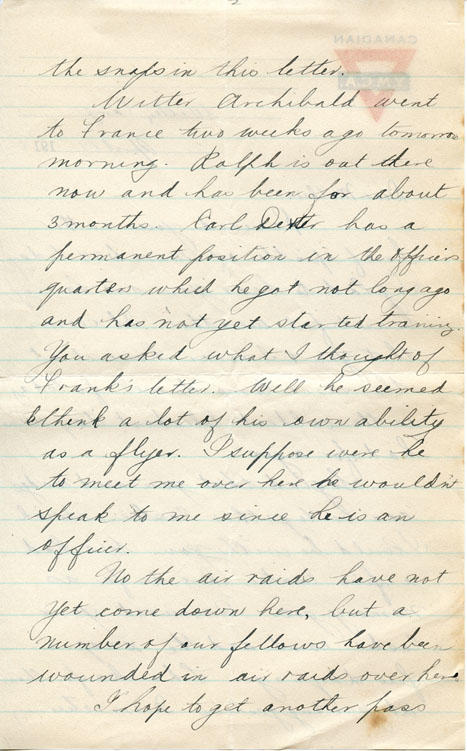 the snaps in this letter.
Witter Archibald went
to France two weeks ago tomorrow
morning. Ralph is out there
now and has been for about
3 months. Earl Dexter has a
permanent position in the officers
quarters which he got not long ago
and has not yet started training.
You asked what I thought of
Frank's letter. Well he seemed
to think a lot of his own ability
as a flyer. I suppose were he
to meet me over here he wouldn't
speak to me since he is an
officer.
No the air raids have not
yet come down here, but a
number of our fellows have been
wounded in air raids over here
I hope to get another pass
CANADIAN
Y.M.C.A.
191